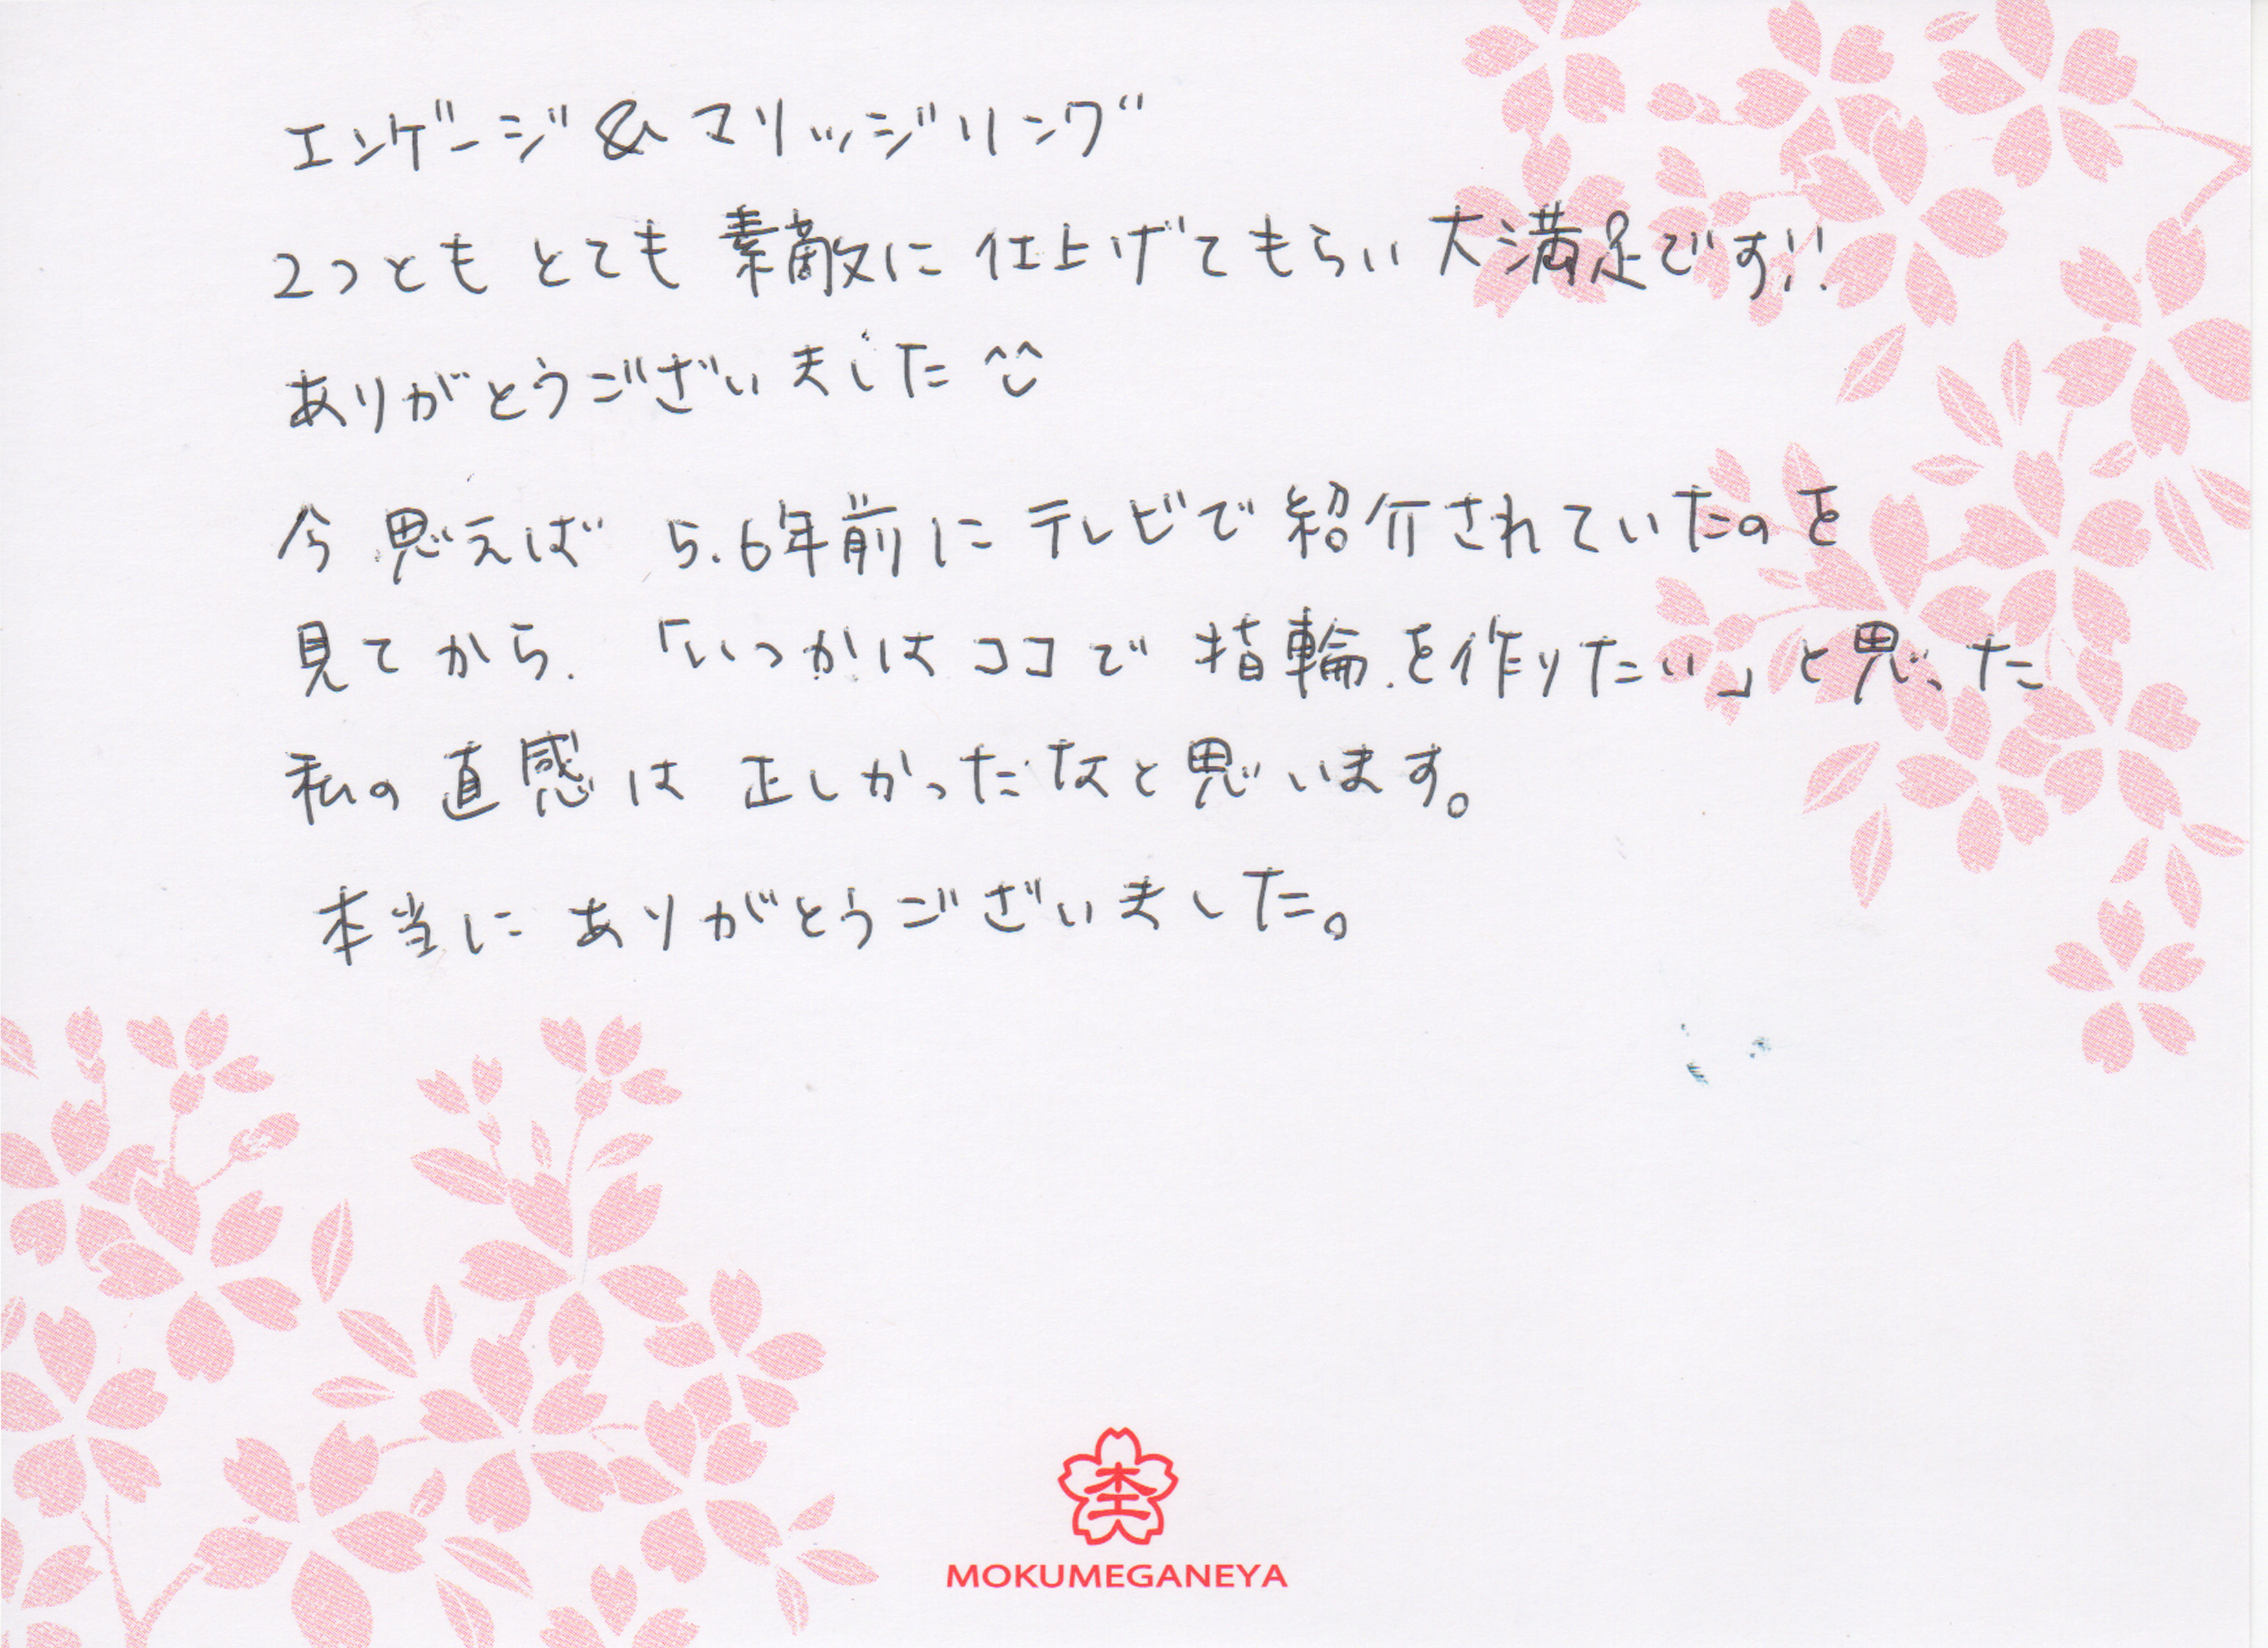 エンゲージ&マリッジリング
2つとも とても 素敵に 仕上げてもらい 大満足です!!
ありがとうございました ^^
今思えば 5.6年前に テレビで 紹介されていたのを
見てから.「いつかは ココで 指輪を作りたい」と思った
私の直感は 正しかったなと思います。
本当に ありがとうございました。
MOKUMEGANEYA